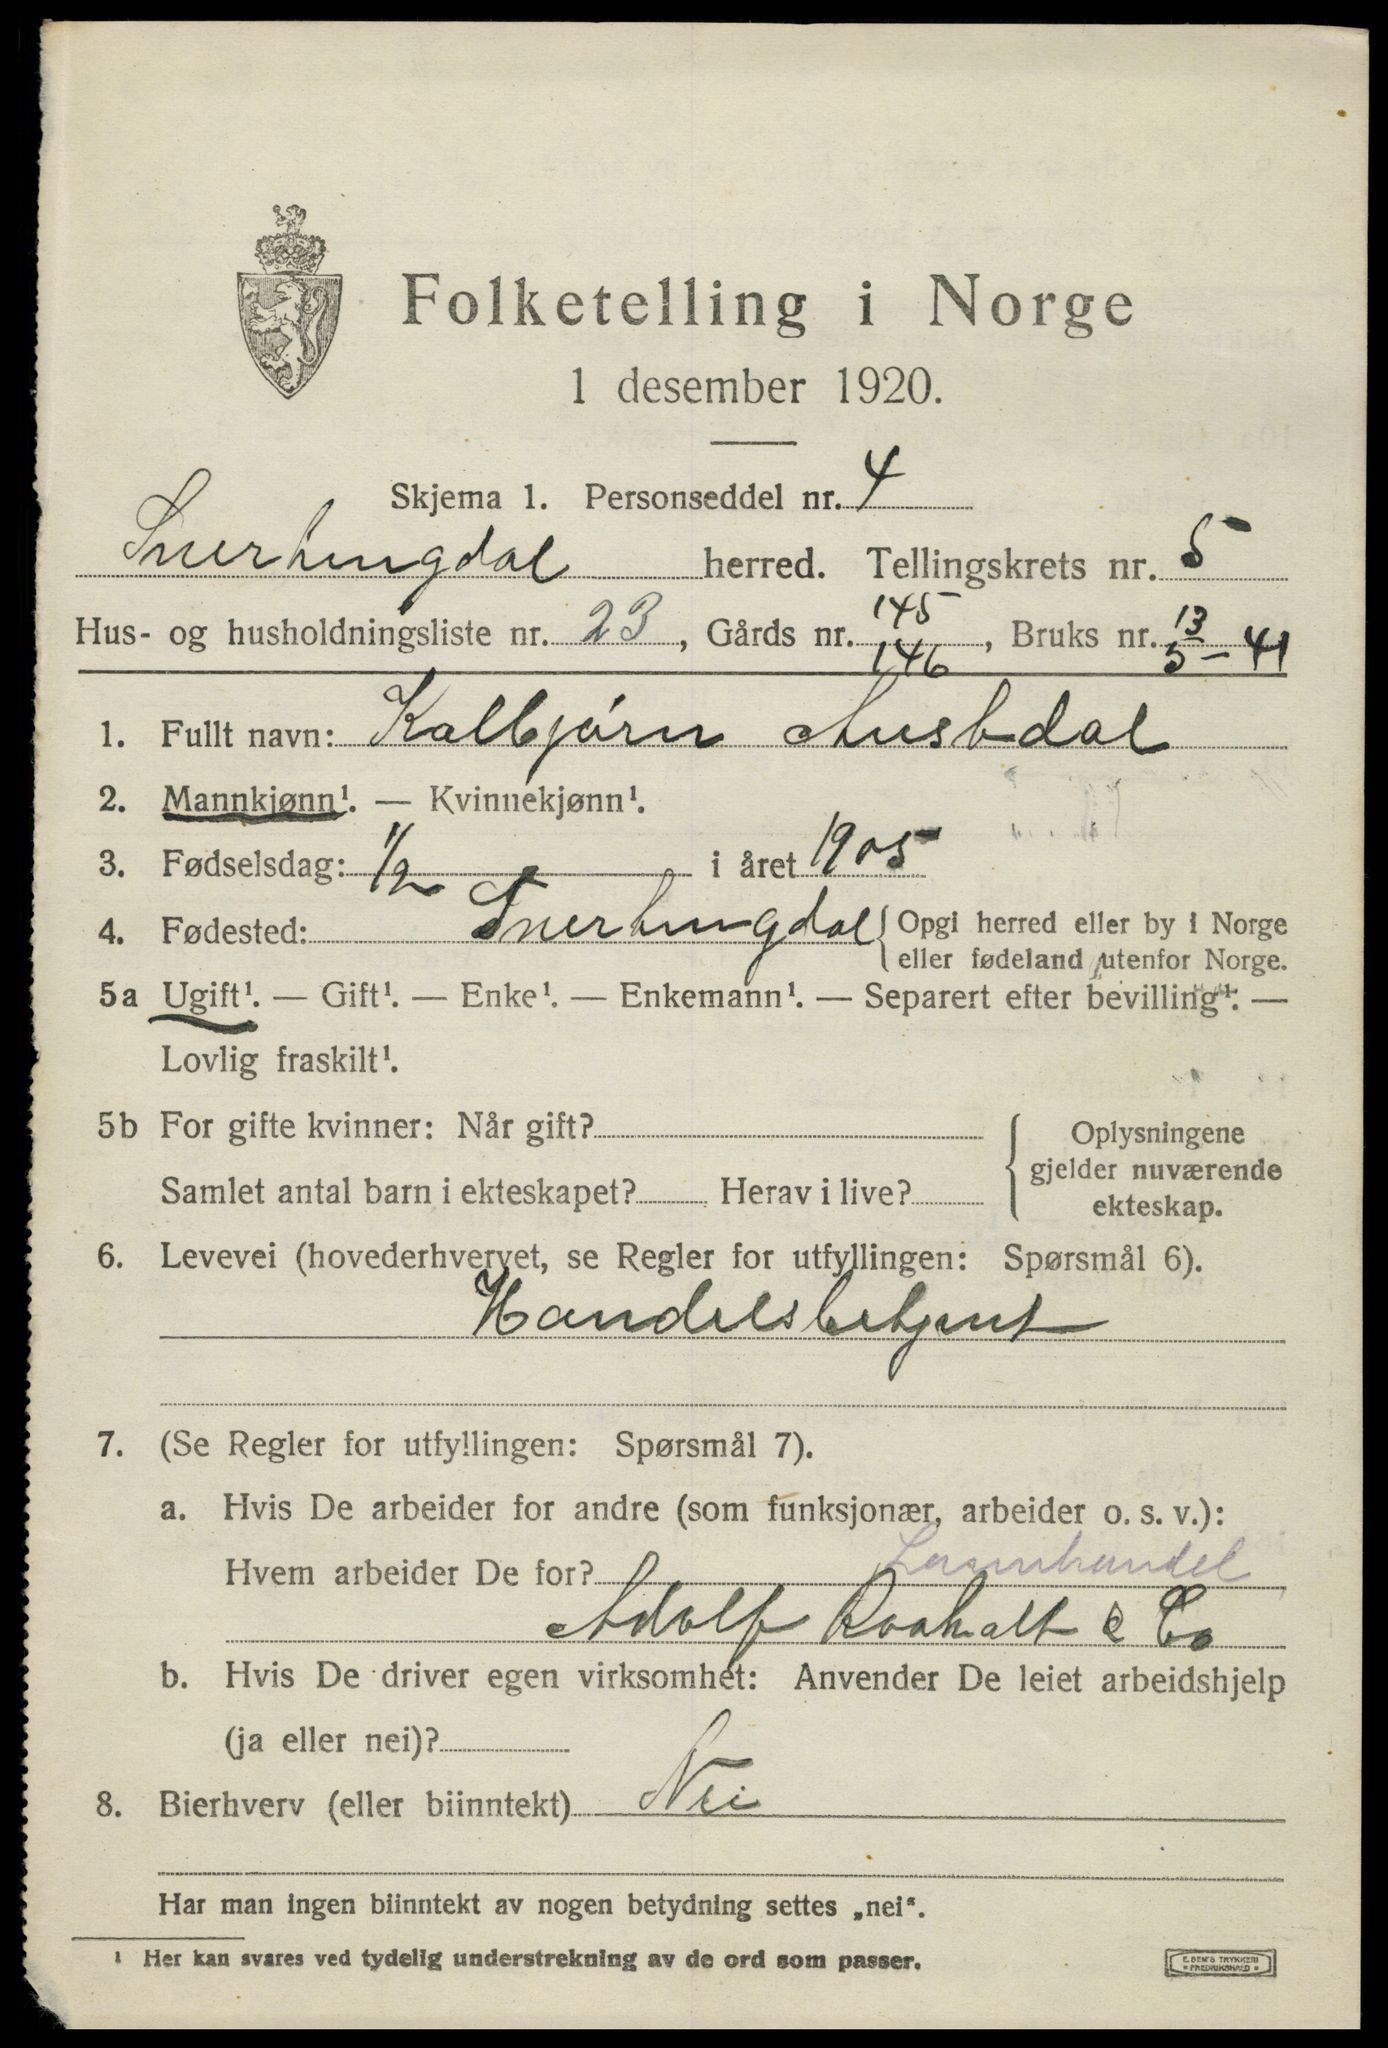 Folketelling i Norge
1 desember 1920.
Skjema 1. Personseddel nr. 4
Snertingdal herred. Tellingskrets nr. 5
145 13
Hus- og husholdningsliste nr. 23, Gårds nr. , Bruks nr. – 41
146 5
1. Fullt navn: Kolbjörn Austdal
2. Mannkjønn¹. — Kvinnekjønn¹.
3. Fødselsdag: 1/2 i året 1905
4. Fødested: Snertingdal { Opgi herred eller by i Norge
eller fødeland utenfor Norge.
5a Ugift¹. — Gift¹. — Enke¹. — Enkemann¹. — Separert efter bevilling¹. —
Lovlig fraskilt¹.
5b For gifte kvinner: Når gift?
Samlet antal barn i ekteskapet? Herav i live?
Oplysningene
gjelder nuværende
ekteskap.
6. Levevei (hovederhvervet, se Regler for utfyllingen: Spørsmål 6).
Handelsbetjent
7. (Se Regler for utfyllingen: Spørsmål 7).
a. Hvis De arbeider for andre (som funksjonær, arbeider o. s. v.):
Hvem arbeider De for?
Adolf & Co
b. Hvis De driver egen virksomhet: Anvender De leiet arbeidshjelp
(ja eller nei)?
8. Bierhverv (eller biinntekt) Nei
Har man ingen biinntekt av nogen betydning settes „nei“.
¹ Her kan svares ved tydelig understrekning av de ord som passer.
E. SEM'S TRYKKERI
FREDRIKSHALD